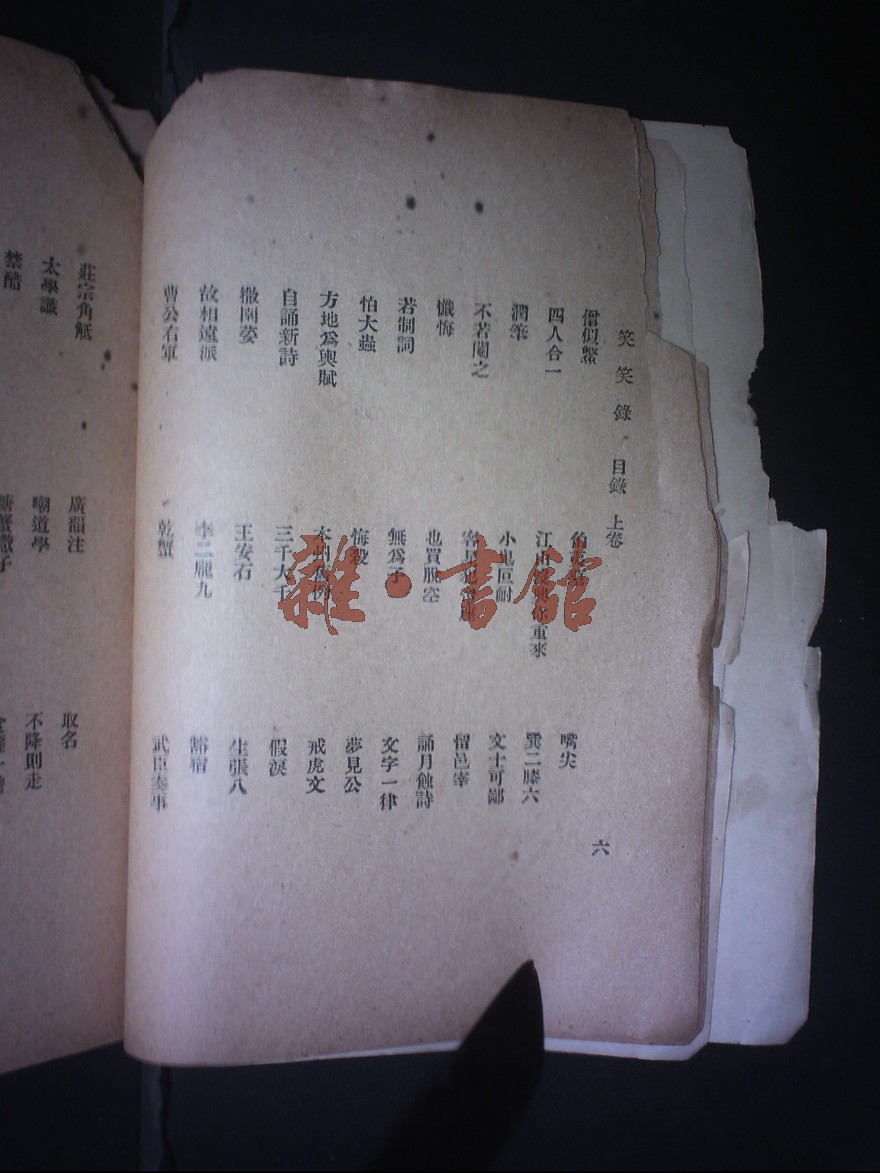 笑笑錄 目錄 上卷 六
僧似鱉
嘴尖
四人合一 江山 重來 巽二滕六
潤筆 小鬼叵耐 文士可鄙
不若閹之 留邑宰
懺悔 也買脫空 誦月蝕詩
若制詞 無爲子 文字一律
怕大蟲 悔殺 夢見公
方地爲輿賦 戒虎文
自誦新詩 三千大千 假淚
撤園荽 王安石 生張八
故相遠派 李二龐九 豁宿
曹公右軍 乾蟹 武臣奏事
莊宗角觝 廣韻注 取名
太學讖 嘲道學 不降則走
禁醋 糖蟹
雜·書館